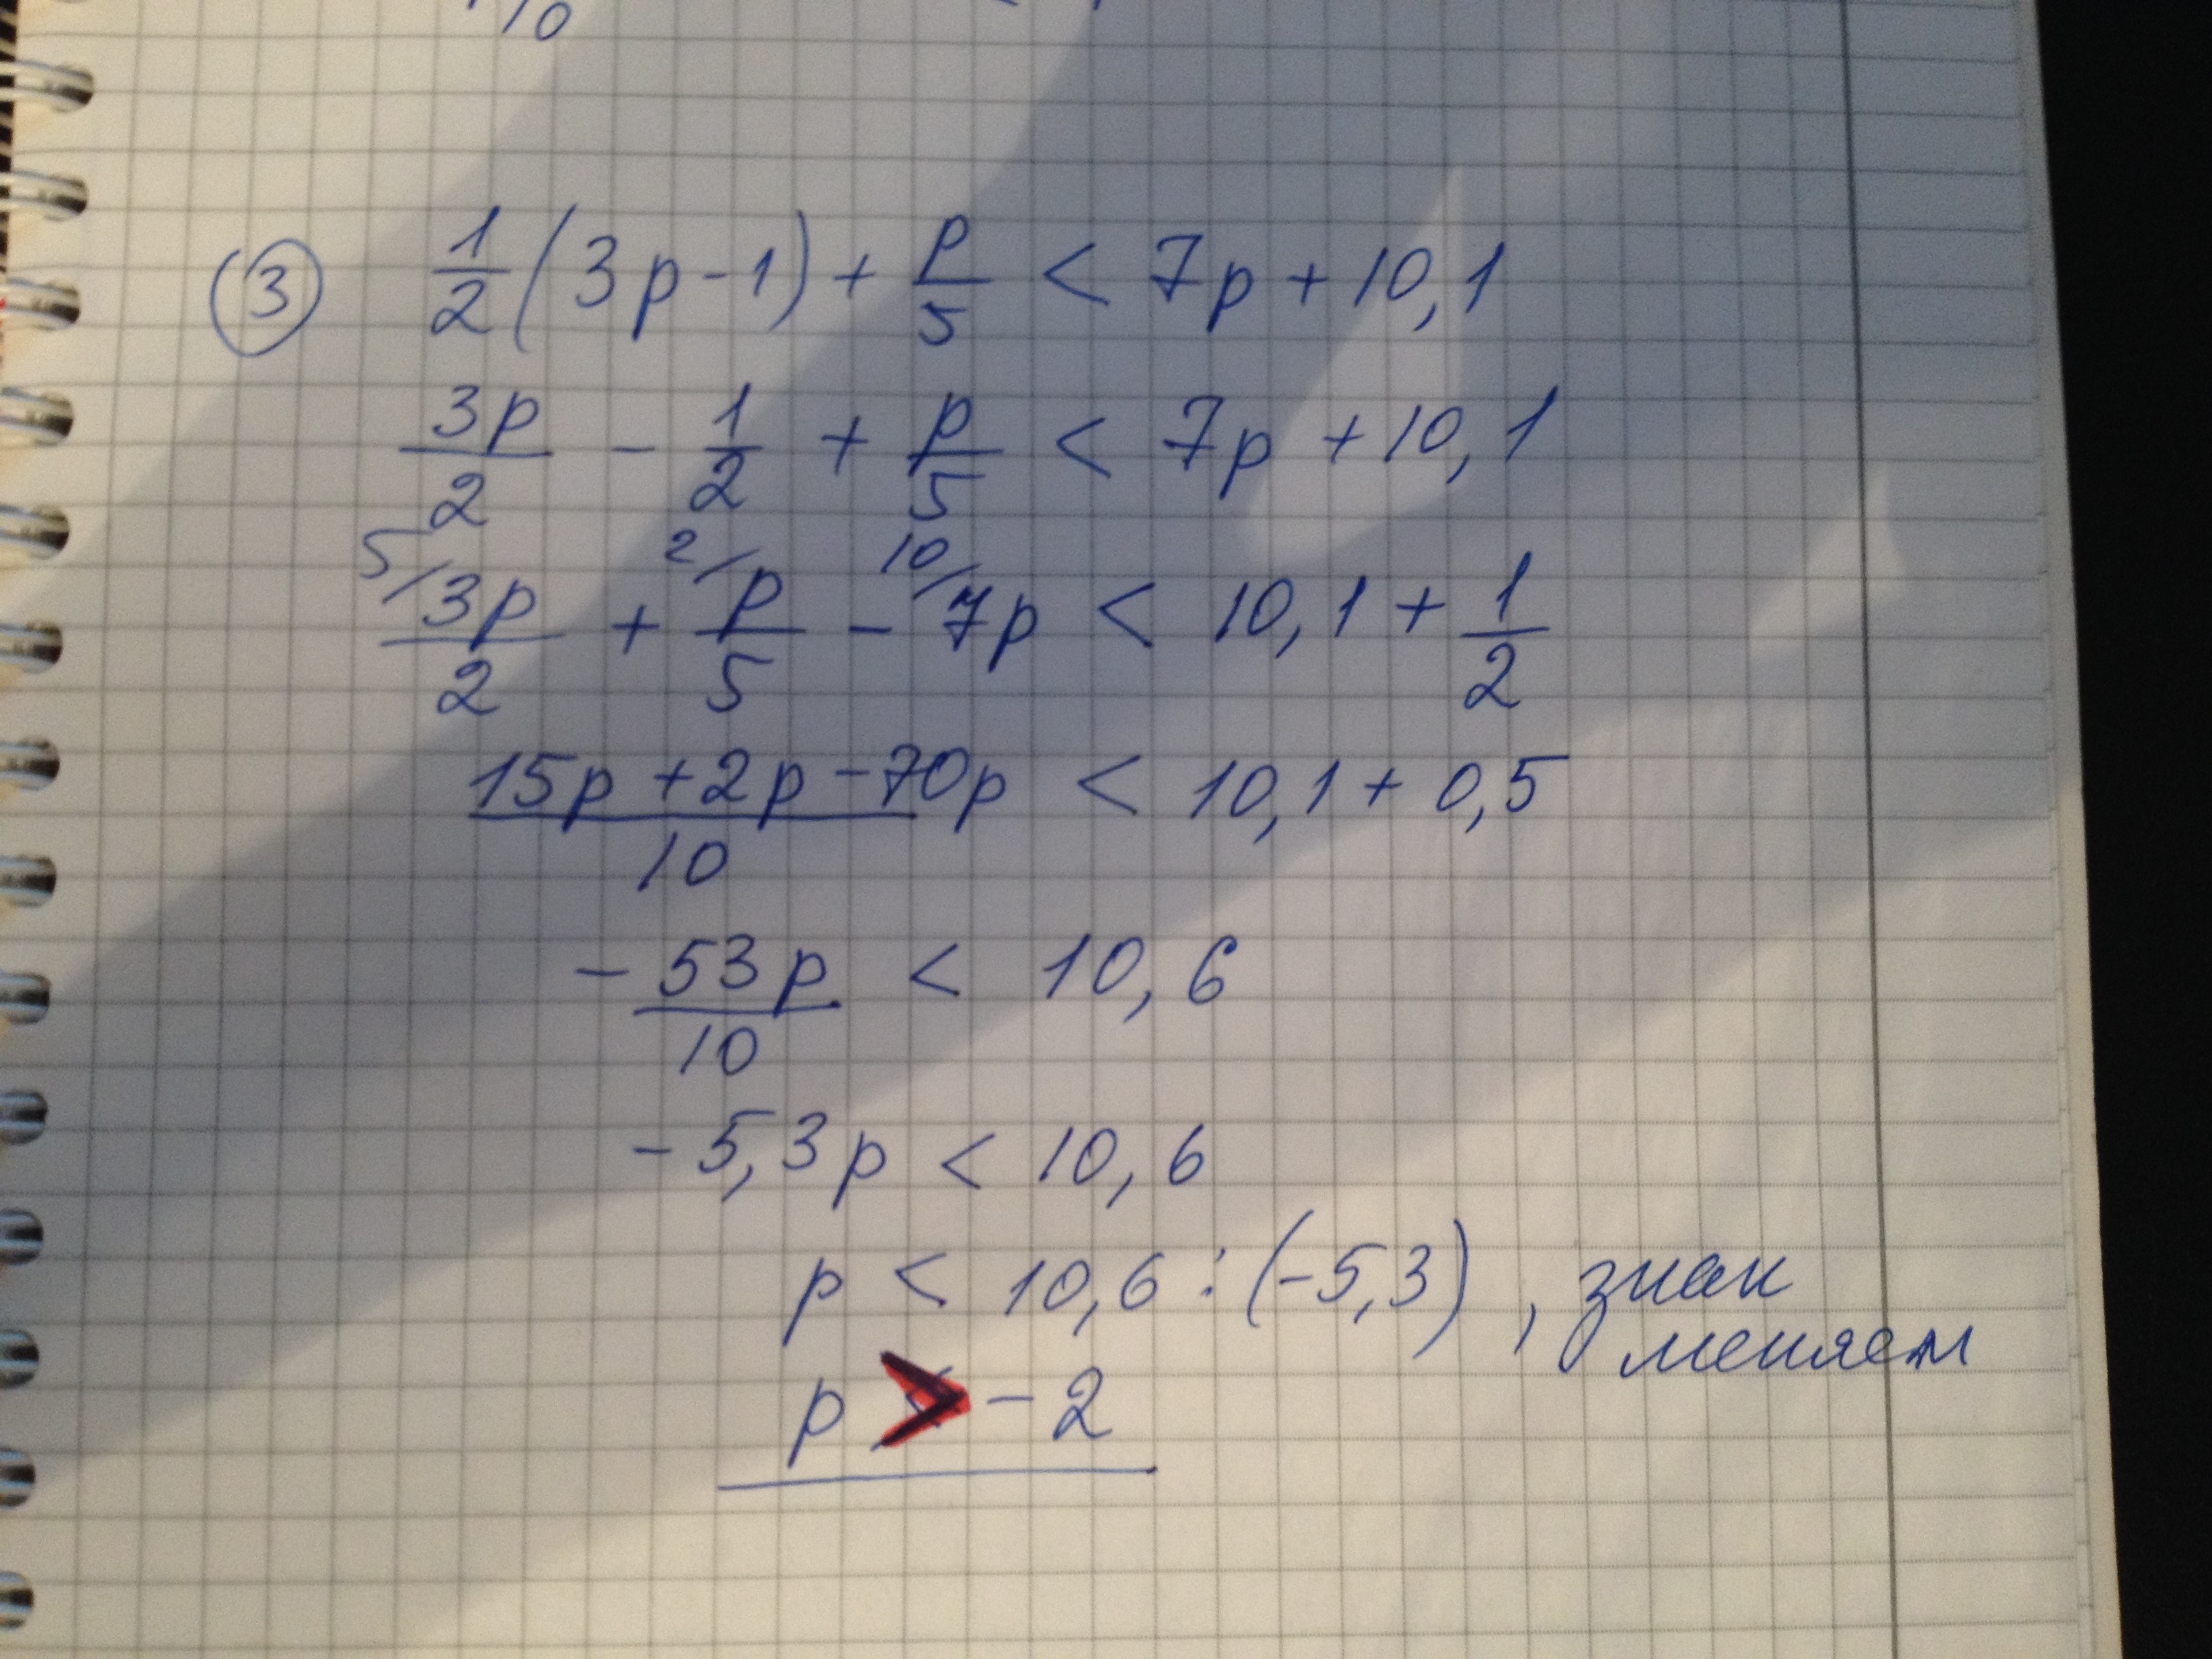 /10
③ 1/2 (3p - 1) + p/5 < 7p + 10,1
3p/2 - 1/2 + p/5 < 7p + 10,1
5/ 3p/2 + 2/ p/5 - 10/ 7p < 10,1 + 1/2
15p + 2p - 70p / 10 < 10,1 + 0,5
- 53p/10 < 10,6
- 5,3p < 10,6
p < 10,6 : (-5,3) , знак
меняем
p > - 2